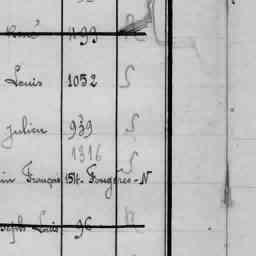 René 1199 N
Louis 1052 S
Julien 939 S
1316 S
in François 1514. Fougères - N
Joseph Louis 96 N